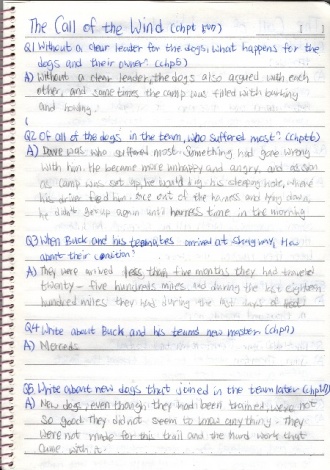 The Call of the Wind (chpt
Q1 Without a clear leader for the dogs, what happens for the
dogs and their owner? (chpt6)
A) Without a clear leader, the dogs also argued with each
other, and sometimes the camp was filled with barking
and
Q2 Of all of the dogs in the team, who suffered most? (chpt6)
A) Dave was who suffered most. Something had gone wrong
with him. He became more unhappy and angry, and as soon
as camp was set up, he would dig his sleeping hole, where
his driver fed him. Once out of the harness and lying down,
he didn't get up again until harness time in the morning
Q3 When Buck and his teammates arrived at How
about their condition?
A) They were arrived less than five months they had traveled
twenty-five hundred miles, and during the last eighteen
hundred miles they had during the last days of rest
Q4 Write about Buck and his teams new master (chp7)
A) Merceds
Q5 Write about new dogs that joined in the team later
A) New dogs, even though they had been trained, were not
so good They did not seem to know anything. They
were not made for this trail and the hard work that
came with it.